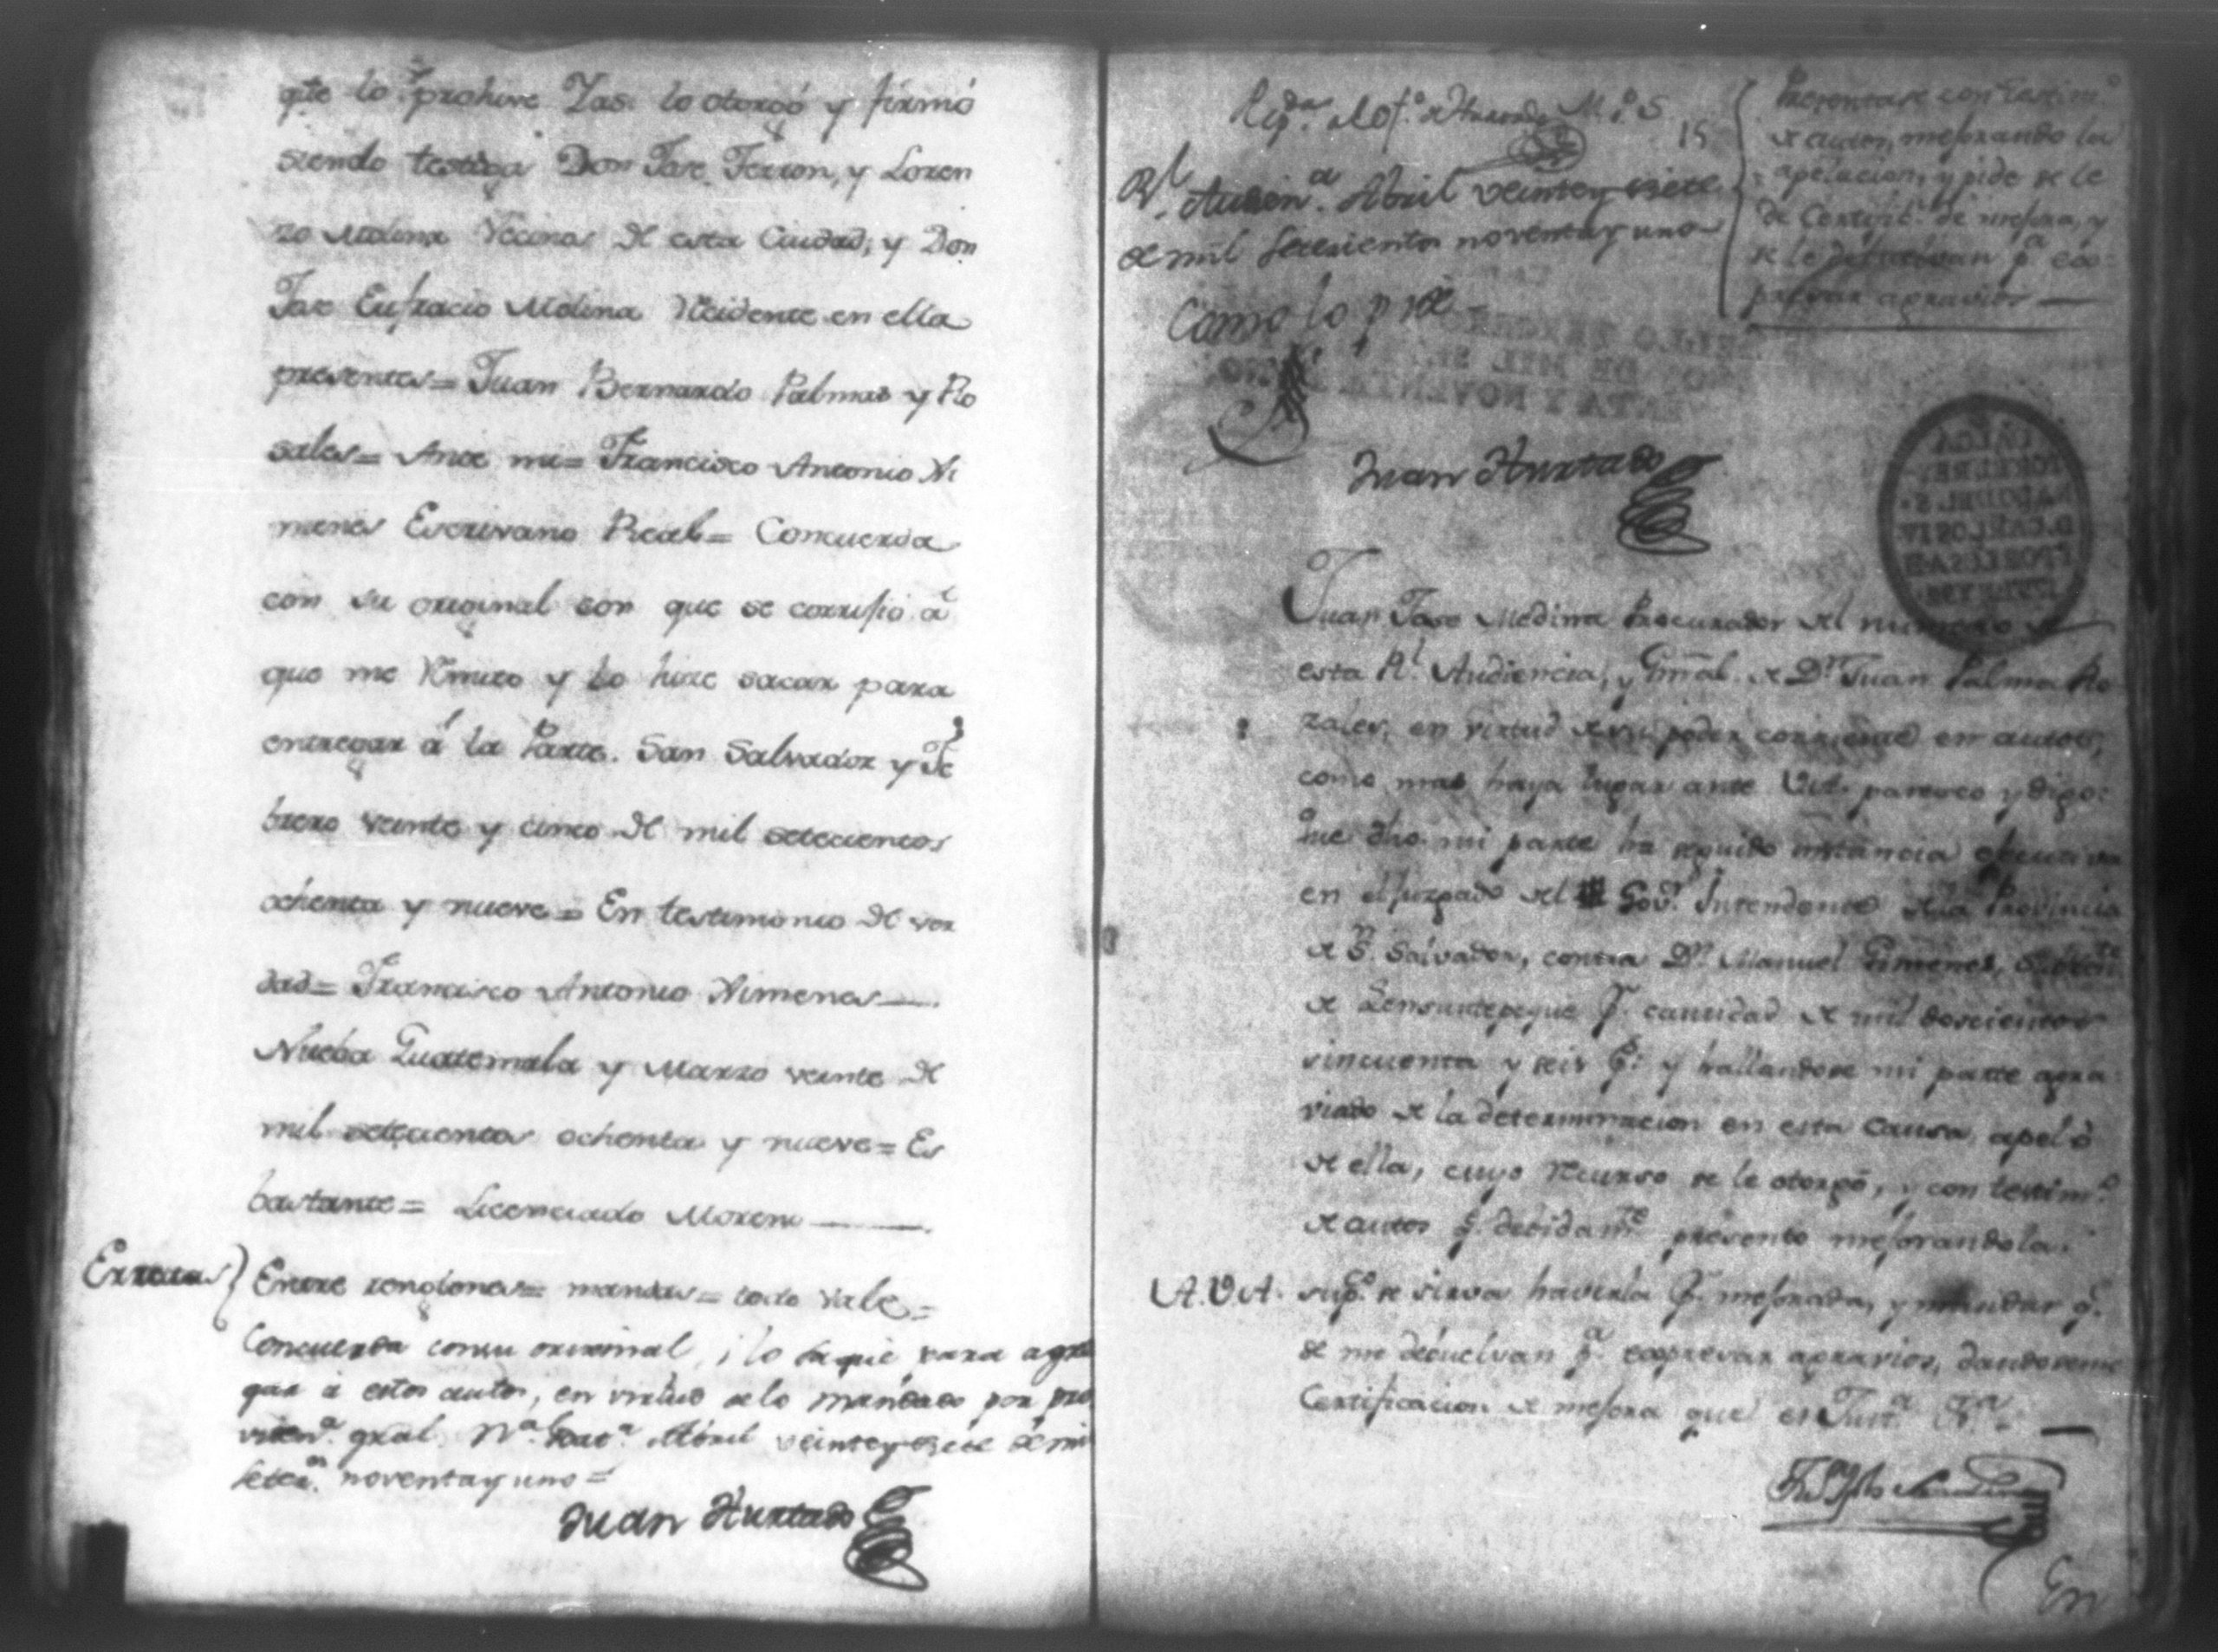 que lo prohive Yasi lo otorgó y firmó
siendo testigos Don Jose Ferron, y Loren
zo Molina Vecinos de esta Ciudad, y Don
Jose Eufracio Molina Residente en ella
presentes= Juan Bernardo Palmas y Ro
sales= Ante mi= Francisco Antonio Xi
menes Escrivano Real= Concuerda
con su original con que se corrijio á
que me remito y lo hize sacar para
entregar á la Parte. San Salvador y Fe
brero veinte y cinco de mil setecientos
ochenta y nueve= En testimonio de ver
dad= Francisco Antonio Ximenes—.
Nueba Guatemala y Marzo veinte de
mil setecientos ochenta y nueve= Es
bastante= Licenciado Moreno —.
Erratas} Entre renglones= mandas= todo vale=
Concuerda con su original, i lo saqué para agre
gar á estos autos, en virtud de lo mandado por pro
viden.ª gral. N.ª Guat.ª Abril veinte y siete de mil
setec.os noventa y uno=
Juan Hurtado
M. P. S.
15
Presentase con testim.º
de autos, mejorando la
apelacion, y pide se le
de Certif.n de mejora, y
se le debuelvan p.ª exs=
presar agravios—
R.l Audien.ª Abril veinte y siete
de mil setecientos noventa y uno
Como lo pide
Juan Hurtado
Juan Jose Medina Procurador del numero de
esta R.l Audiencia, y de D.n Juan Palma Ro
zales, en virtud de su poder corriente en autos,
como mas haya lugar ante V.A. paresco y digo:
Que dho. mi parte ha seguido instancia
en el juzgado del Gov.r Intendente de la Provincia
de S.n Salvador, contra D.n Manuel Gimenes,
de Sensuntepeque p.r cantidad de mil doscientos
cincuenta y seis p.s y hallandose mi parte agra
viado de la determinacion en esta causa, apeló
de ella, cuyo recurso se le otorgó, y con testim.º
de autos q.e debidam.te presento mejorandola.
A.V.A. sup.co se sirva haverla p.r mejorada, y mandar q.e
se me debuelvan p.ª expresar agravios, dandoseme
Certificacion de mejora que es Just.ª
En